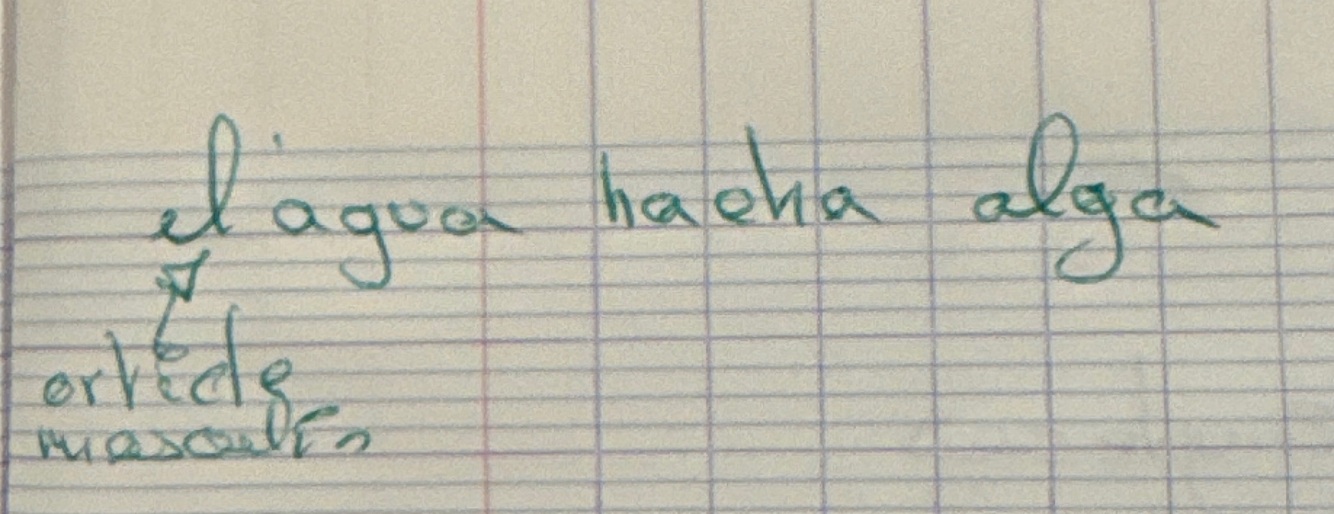 el agua hacha alga
article
masculin